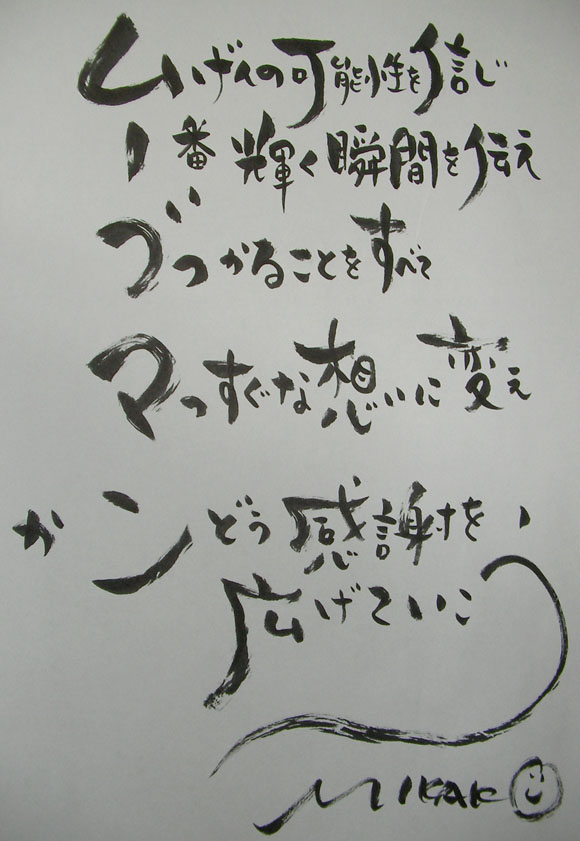 ムげんの可能性を信じ
1番輝く瞬間を伝え
ブつかることをすべて
マっすぐな想いに変え
かンどう感謝を
広げていこう
MIKAKO